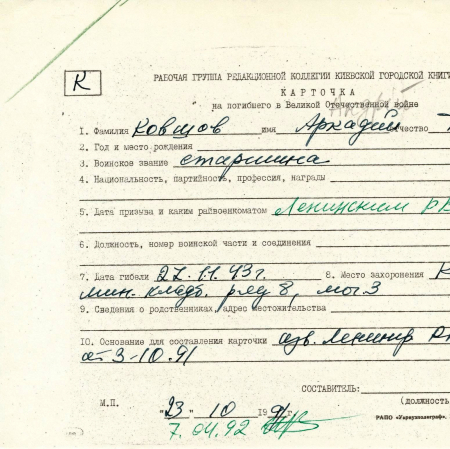 К
РАБОЧАЯ ГРУППА РЕДАКЦИОННОЙ КОЛЛЕГИИ КИЕВСКОЙ ГОРОДСКОЙ КНИГИ
КАРТОЧКА
на погибшего в Великой Отечественной войне
1. Фамилия Ковшов имя Аркадий отчество
2. Год и место рождения
3. Воинское звание старшина
4. Национальность, партийность, профессия, награды
5. Дата призыва и каким райвоенкоматом Ленинским
6. Должность, номер воинской части и соединения
7. Дата гибели 27.11.43г. 8. Место захоронения К
мин. кладб. ряд 8, мог. 3
9. Сведения о родственниках, адрес местожительства
10. Основание для составления карточки изв. Ленингр
от 3-10.91
СОСТАВИТЕЛЬ:
(ДОЛЖНОСТЬ,
М.П. "23" 10 1991г.
7.04.92
РАПО «Укрвузполиграф».